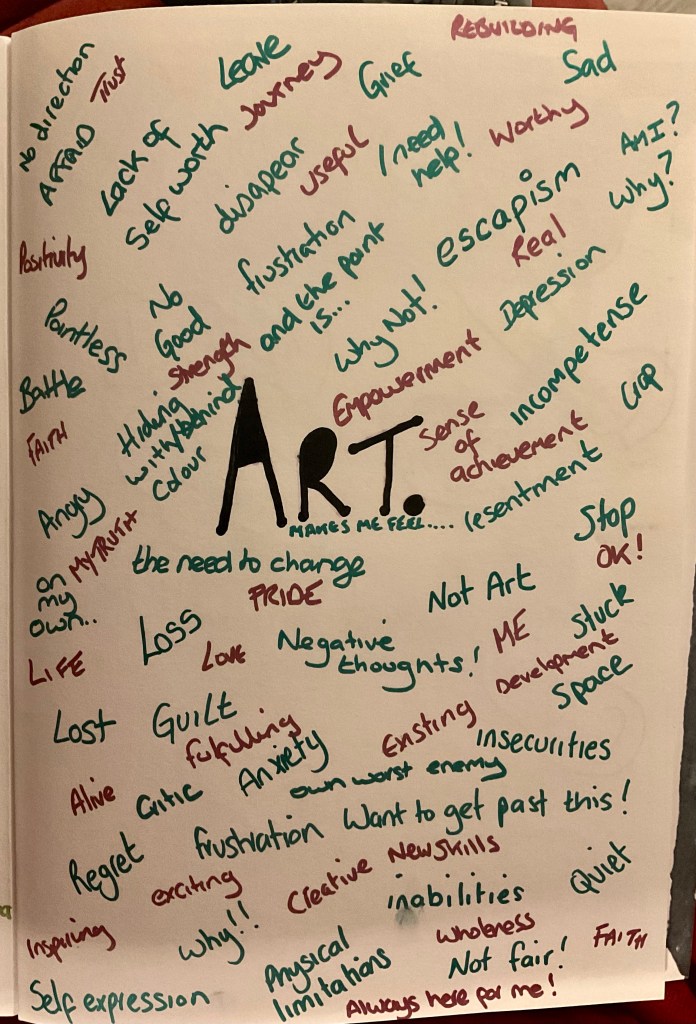 REBUILDING
No direction
Trust
AFFRAID
Leave
Journey
Grief
Sad
Lack of
Self worth
disapear
useful
I need
help!
Worthy
Am I?
Why?
Positivity
frustration
and the point
is...
escapism
Real
Pointless
No
Good
Strength
Why Not!
Depression
Battle
FAITH
Hiding
with/behind
Colour
Empowerment
Sense
of
achievement
incompetense
Crap
ART.
MAKES ME FEEL....
resentment
Angry
MY TRUTH
on
my
own..
the need to change
Stop
OK!
PRIDE
Not Art
Loss
Love
Negative
thoughts!
ME
Stuck
LIFE
Development
Space
Lost
GUILT
fulfulling
Existing
insecurities
Alive
Critic
Anxiety
own worst enemy
Regret
frustration
Want to get past this!
exciting
Creative
New skills
inabilities
Quiet
Inspiring
Why!!
Physical
limitations
Wholeness
Not fair!
FAITH
Self expression
Always here for me!